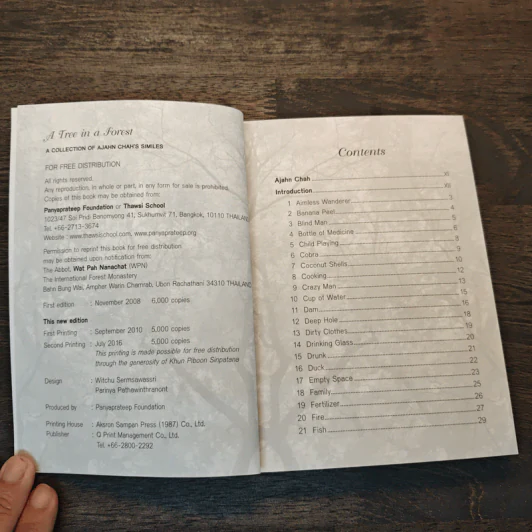 A Tree in a Forest
A COLLECTION OF AJAHN CHAH'S SIMILES
FOR FREE DISTRIBUTION
All rights reserved.
Any reproduction, in whole or part, in any form for sale is prohibited.
Copies of this book may be obtained from:
Panyaprateep Foundation or Thawsi School
1023/47 Soi Pridi Banomyong 41, Sukhumvit 71, Bangkok, 10110 THAILAND
Tel. +66-2713-3674
Website : www.thawsischool.com, www.panyaprateep.org
Permission to reprint this book for free distribution
may be obtained upon notification from:
The Abbot, Wat Pah Nanachat (WPN)
The International Forest Monastery
Bahn Bung Wai, Ampher Warin Chamrab, Ubon Rachathani 34310 THAILAND
First edition : November 2008 6,000 copies
This new edition
First Printing : September 2010 5,000 copies
Second Printing : July 2016 5,000 copies
This printing is made possible for free distribution
through the generosity of Khun Piboon Siripatana
Design : Witchu Sermsawassri
Parinya Pathawinthranont
Produced by : Panyaprateep Foundation
Printing House : Aksron Sampan Press (1987) Co., Ltd.
Publisher : Q Print Management Co., Ltd.
Tel. +66-2800-2292
Contents
Ajahn Chah xi
Introduction xiii
1 Aimless Wanderer 3
2 Banana Peel 4
3 Blind Man 5
4 Bottle of Medicine 6
5 Child Playing 8
6 Cobra 9
7 Coconut Shells 10
8 Cooking 12
9 Crazy Man 13
10 Cup of Water 15
11 Dam 16
12 Deep Hole 18
13 Dirty Clothes 19
14 Drinking Glass 20
15 Drunk 21
16 Duck 22
17 Empty Space 23
18 Family 25
19 Fertilizer 26
20 Fire 27
21 Fish 29